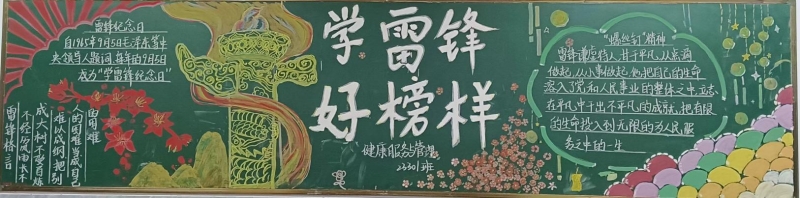 雷锋纪念日
自1965年3月5日毛泽东等中
央领导人题词，每年的3月5日
成为“学雷锋纪念日”
雷锋格言
不经历风雨长不
成大树不受百炼
难以成钢把别
人的困难当成自己
的困难
学雷锋
好榜样
健康服务管理
23301班
“螺丝钉”精神
雷锋谦虚待人，甘于平凡，从点滴
做起，从小事做起，他把自己的生命
溶入了党和人民事业的整体之中，立志
在平凡中干出不平凡的成就，把有限
的生命投入到无限的为人民服
务之中的一生